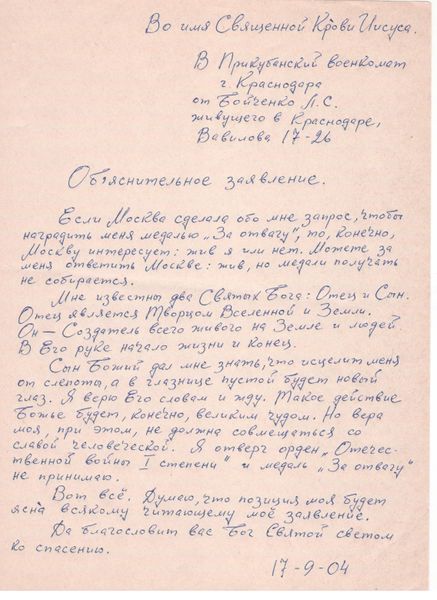 Во имя Священной Крови Иисуса.
В Прикубанский военкомат
г. Краснодара
от Бойченко Л.С.
живущего в Краснодаре,
Вавилова 17-26
Объяснительное заявление.
Если Москва сделала обо мне запрос, чтобы
наградить меня медалью „За отвагу", то, конечно,
Москву интересует: жив я или нет. Можете за
меня ответить Москве: жив, но медали получать
не собирается.
Мне известны два Святых Бога: Отец и Сын.
Отец является Творцом Вселенной и Земли.
Он — Создатель всего живого на Земле и людей.
В Его руке начало жизни и конец.
Сын Божий дал мне знать, что исцелит меня
от слепоты, а в глазнице пустой будет новый
глаз. Я верю Его словам и жду. Такое действие
Божье будет, конечно, великим чудом. Но вера
моя, при этом, не должна совмещаться со
славой человеческой. Я отверг орден „Отечес-
твенной войны I степени" и медаль „За отвагу"
не принимаю.
Вот всё. Думаю, что позиция моя будет
ясна всякому читающему моё заявление.
Да благословит вас Бог Святой светом
ко спасению.
17-9-04